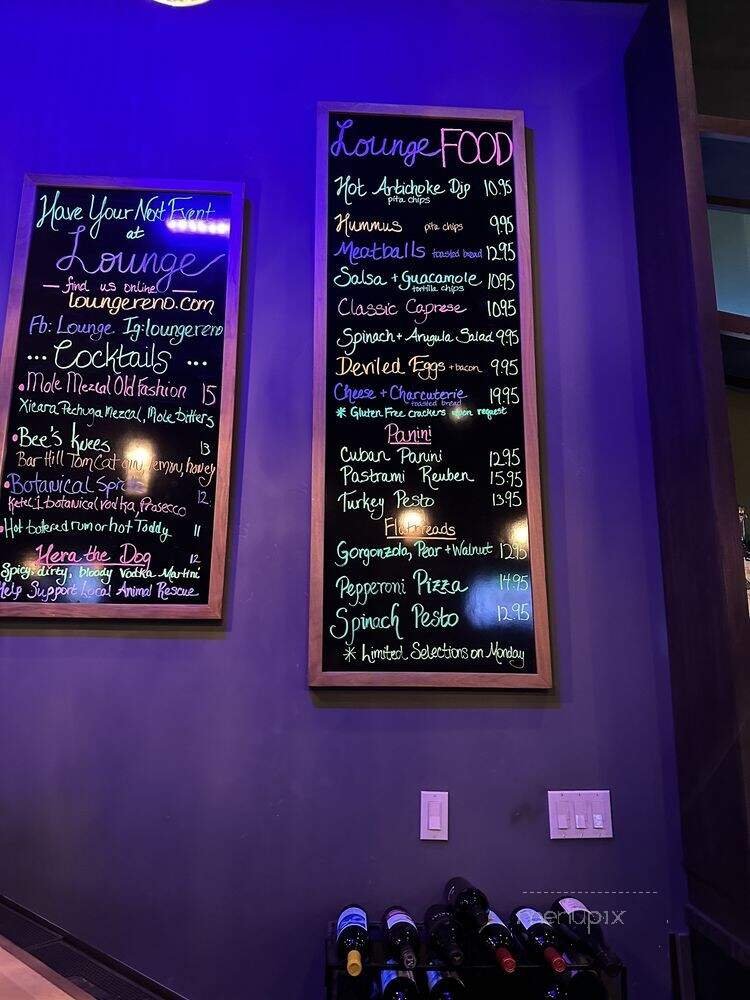 Have Your Next Event
at
Lounge
— find us online —
loungereno.com
Fb: Lounge Ig:loungereno
... Cocktails ...
• Mole Mezcal Old Fashion 15
Xicara Pechuga Mezcal, Mole bitters
• Bee's Knees 13
Bar Hill Tom Cat gin, lemon, honey
• Botanical Spritz 12
Ketel 1 botanical vodka, Prosecco
• Hot buttered rum or hot Toddy 11
Hera the Dog 12
Spicy, dirty, bloody Vodka Martini
Help Support Local Animal Rescue
Lounge FOOD
Hot Artichoke Dip 10.95
pita chips
Hummus pita chips 9.95
Meatballs toasted bread 12.95
Salsa + Guacamole 10.95
tortilla chips
Classic Caprese 10.95
Spinach + Arugula Salad 9.95
Deviled Eggs + bacon 9.95
Cheese + Charcuterie 19.95
toasted bread
* Gluten Free crackers upon request
Panini
Cuban Panini 12.95
Pastrami Reuben 15.95
Turkey Pesto 13.95
Flatbreads
Gorgonzola, Pear + Walnut 12.95
Pepperoni Pizza 14.95
Spinach Pesto 12.95
* Limited Selections on Monday
menupix